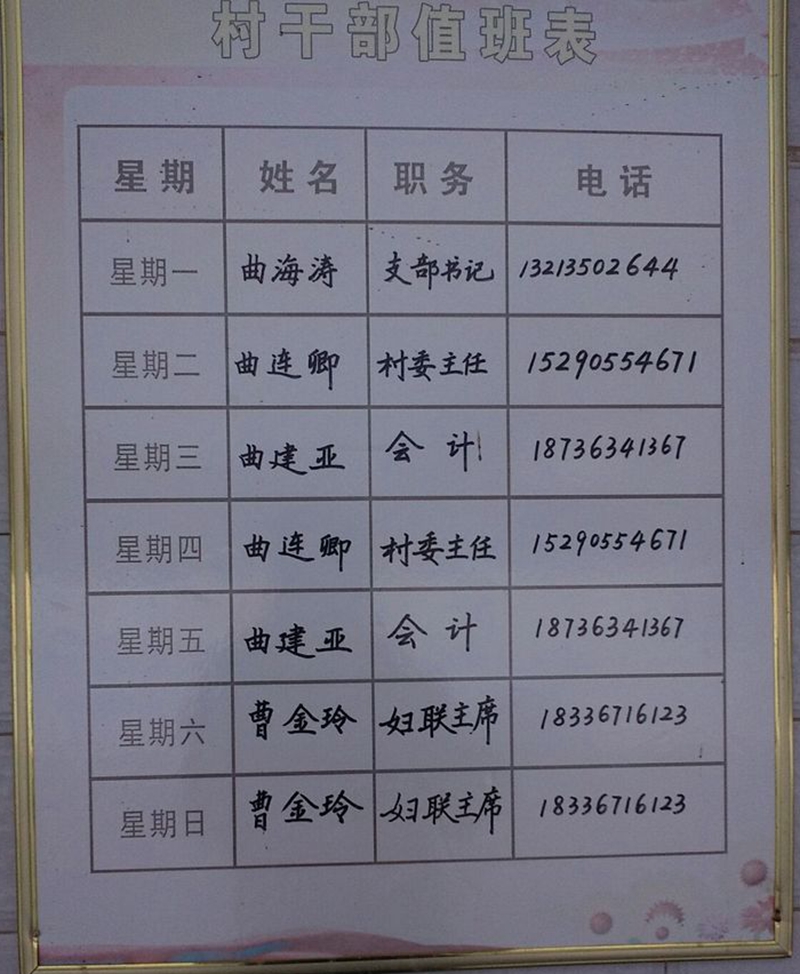 村干部值班表
星期 姓名 职务 电话
星期一 曲海涛 支部书记 13213502644
星期二 曲连卿 村委主任 15290554671
星期三 曲建亚 会计 18736341367
星期四 曲连卿 村委主任 15290554671
星期五 曲建亚 会计 18736341367
星期六 曹金玲 妇联主席 18336716123
星期日 曹金玲 妇联主席 18336716123